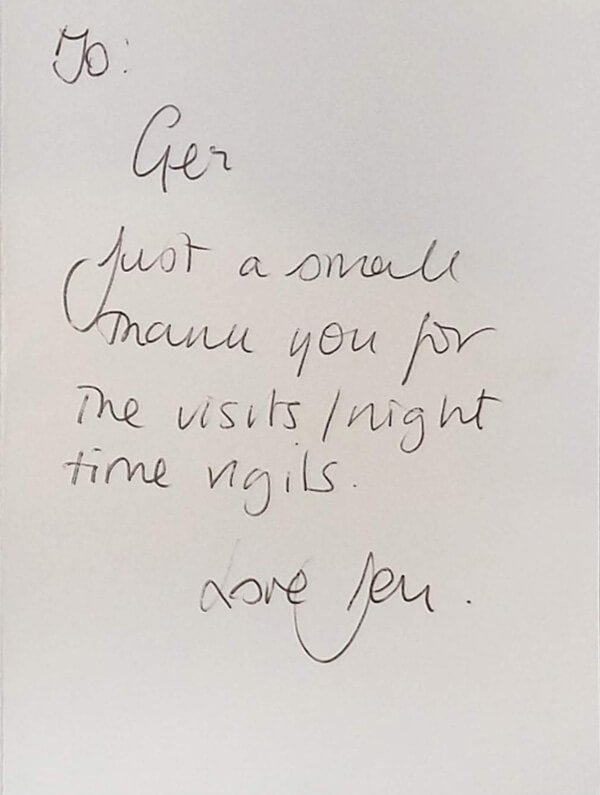 To:
Ger
Just a small
thank you for
the visits/night
time vigils.
Love Jen.